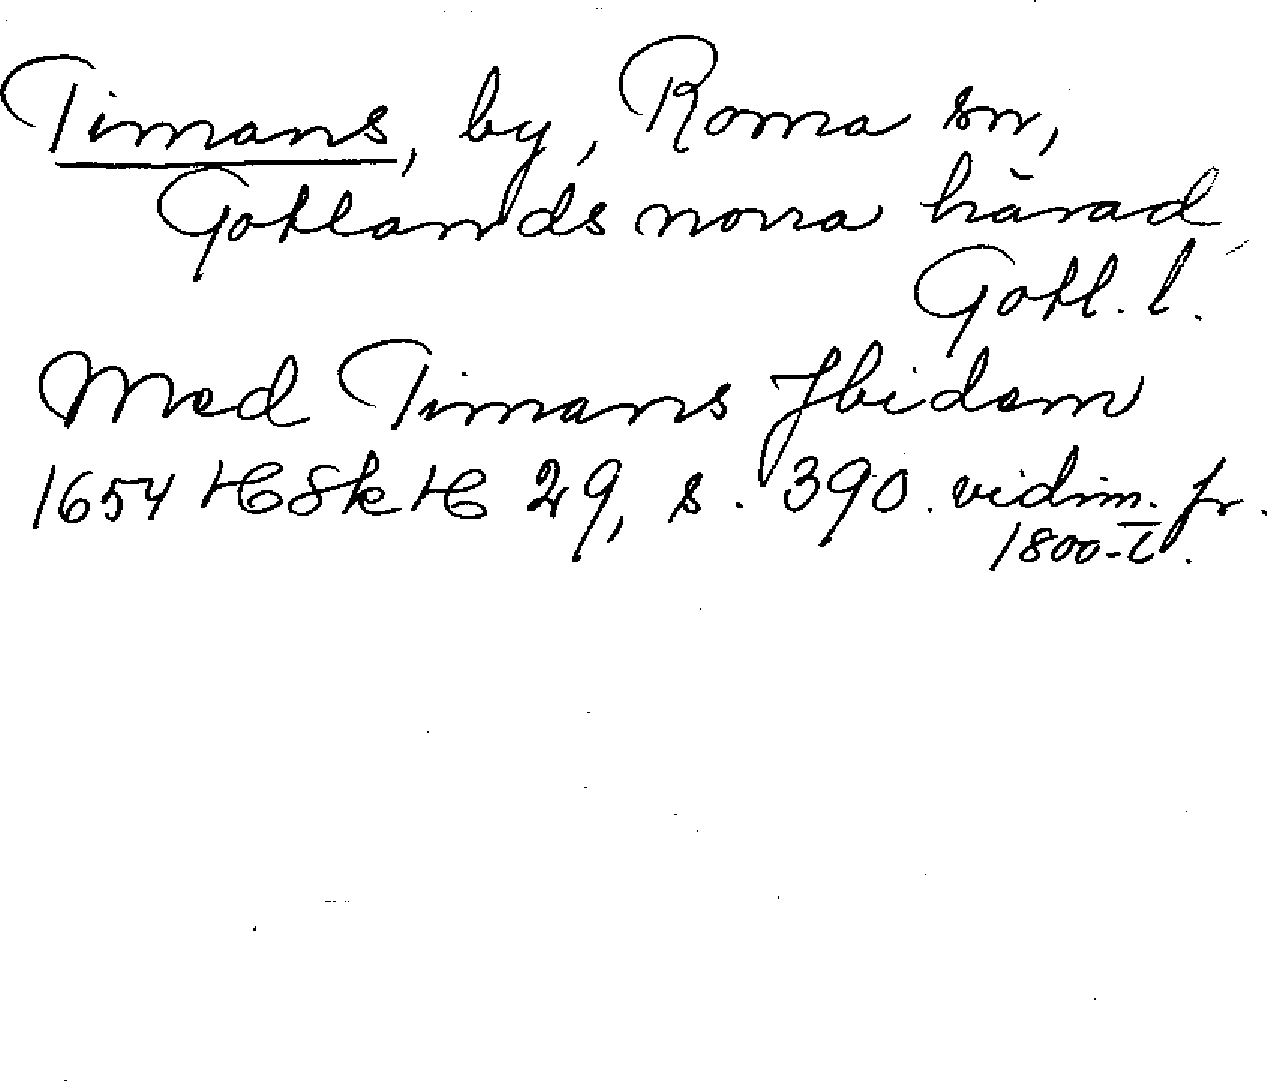 Timans, by, Roma sn,
Gotlands norra härad,
Gotl. l.
Med Timans Jbidem
1654 HSkH 29, s. 390. vidim. fr.
1800-t.